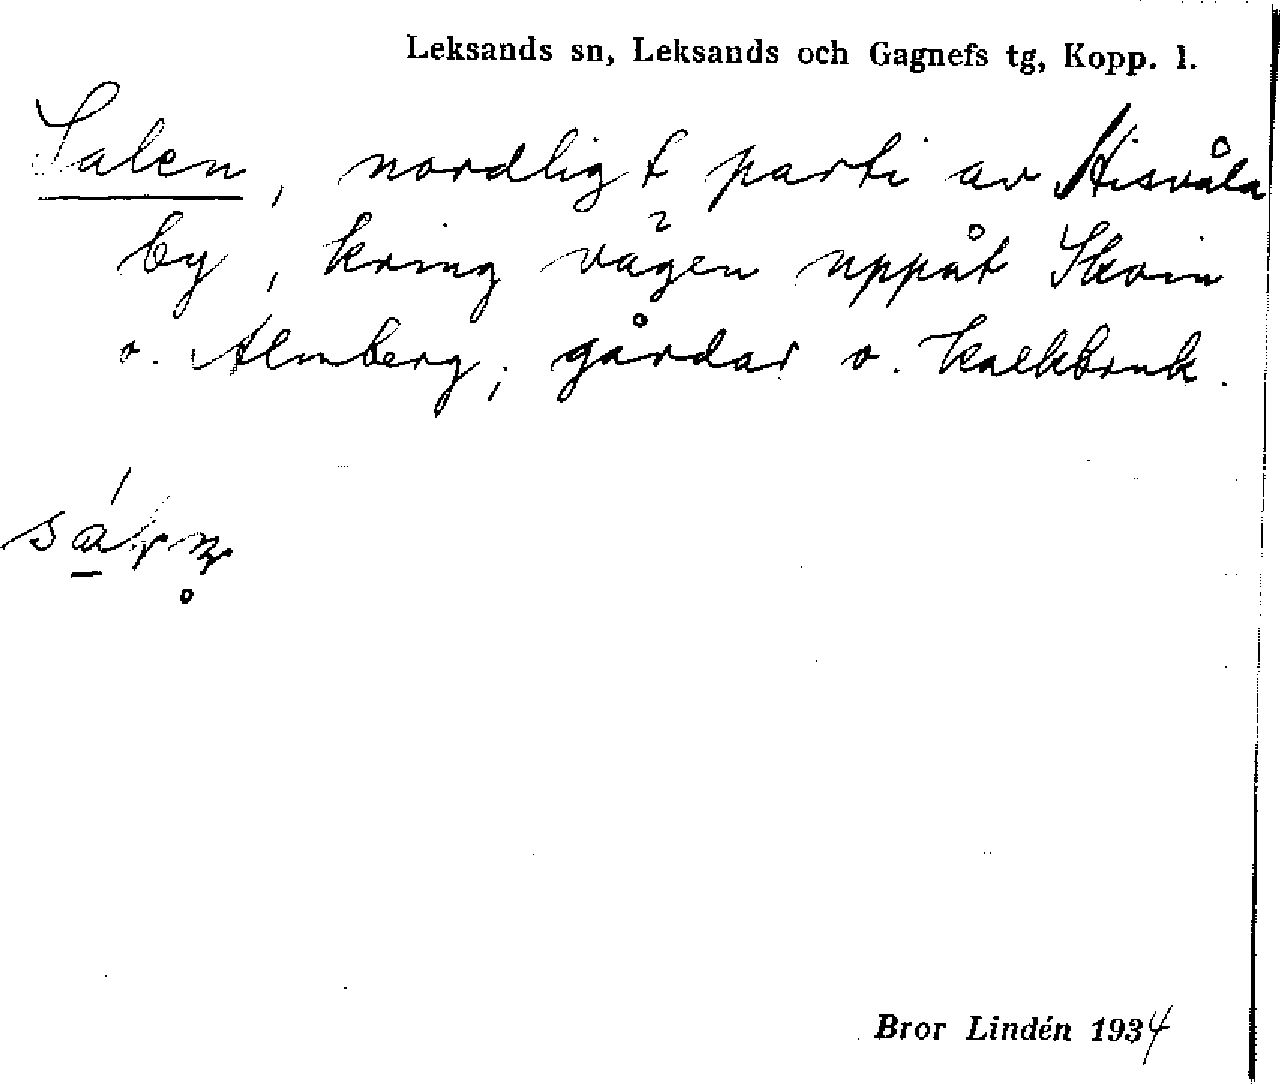 Leksands sn, Leksands och Gagnefs tg, Kopp. l.
Salen, nordligt parti av Hisvåla
by, kring vägen uppåt Skoin
o. Almberg; gårdar o. kalkbruk.
Bror Lindén 1934